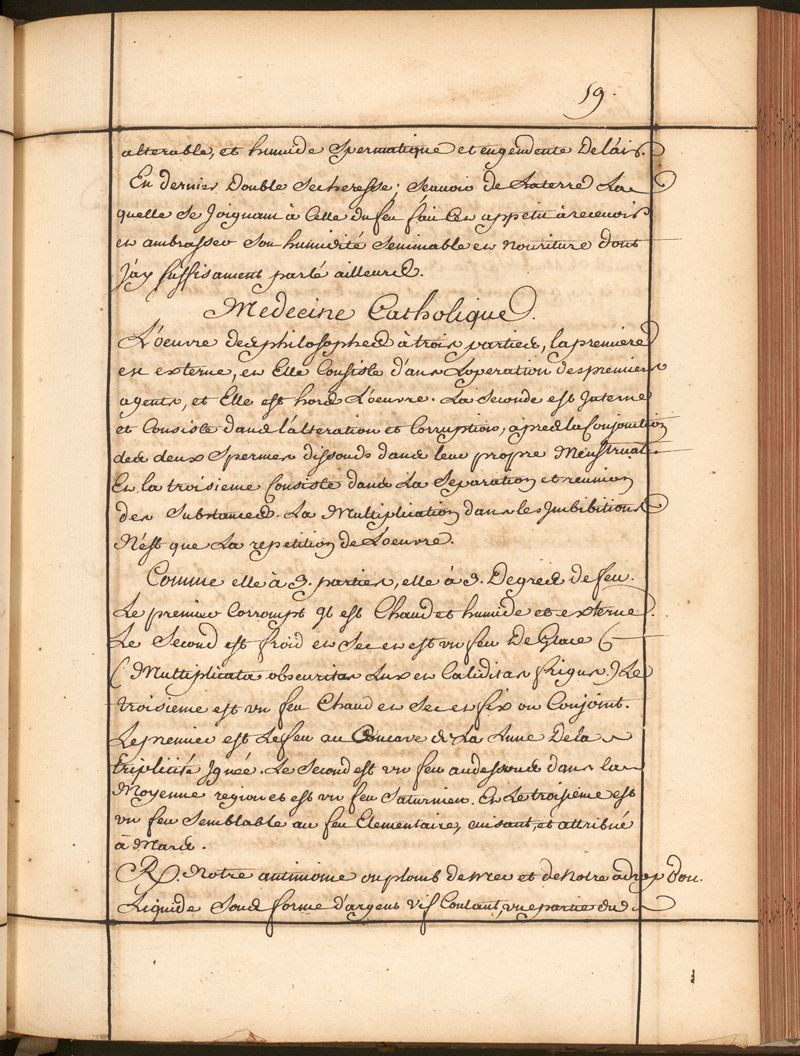 59.
alterable, et humide Spermatique et engendente De lair.
En dernier Double Secheresse; Scauoir de La terre La
quelle Se Joignant à Celle du feu fait Cen appetit à receuoir
en ambrasser Son humidité Seminable en Nouriture dont
J'ay suffisament parlé ailleurs.
Medecine Catholique.
L'oeuvre des philosophes à trois parties, la premiere
est externe, en Elle Consiste d'ans Loperation des premiers
agents, et Elle est hors L'oeuvre. La Seconde est Interne
et Consiste dans l'alteration et Corruption, apres la Conjonction
des deux Spermes dissouds dans leur propre Menstrual
En la troisieme Consiste dans La Separation et reunion
des Substances. La Multiplication dans les Imbibitions
N'est que La repetition de L'oeuvre.
Comme elle à 3. parties, elle à 3. Degrés de feu.
Le premier Corrompt et est Chaud et humide et externe.
Le Second est froid en Sec en est vn feu De Glace
(Multiplicata obscuritas Lux en Caliditas frigus.) Le
troisieme est vn feu Chaud en Sec en fix ou Conjoint.
Le premier est Le feu au Concave de La Lune De la
triplicité Ignée. Le Second est vn feu audessous dans la
Moyenne region et est vn feu Saturnien. En Le troisiéme est
vn feu Semblable au feu Elementaire, cuisant, et attribué
à Mars.
R. Notre antimoine ou plomb de mer et de Notre adrop
Liquide Sous forme d'argent vif Coulant, vne partie du